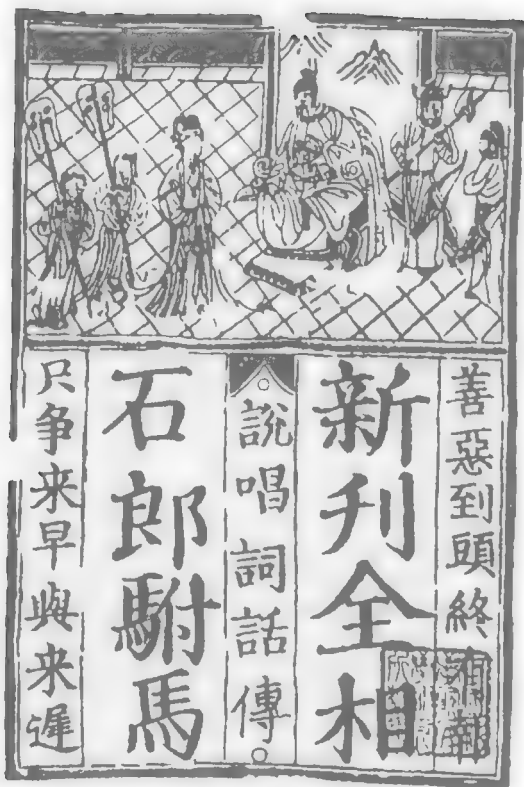 善惡到頭終
新刋全相
說唱詞話傳
石郎駙馬
只争来早與来遲